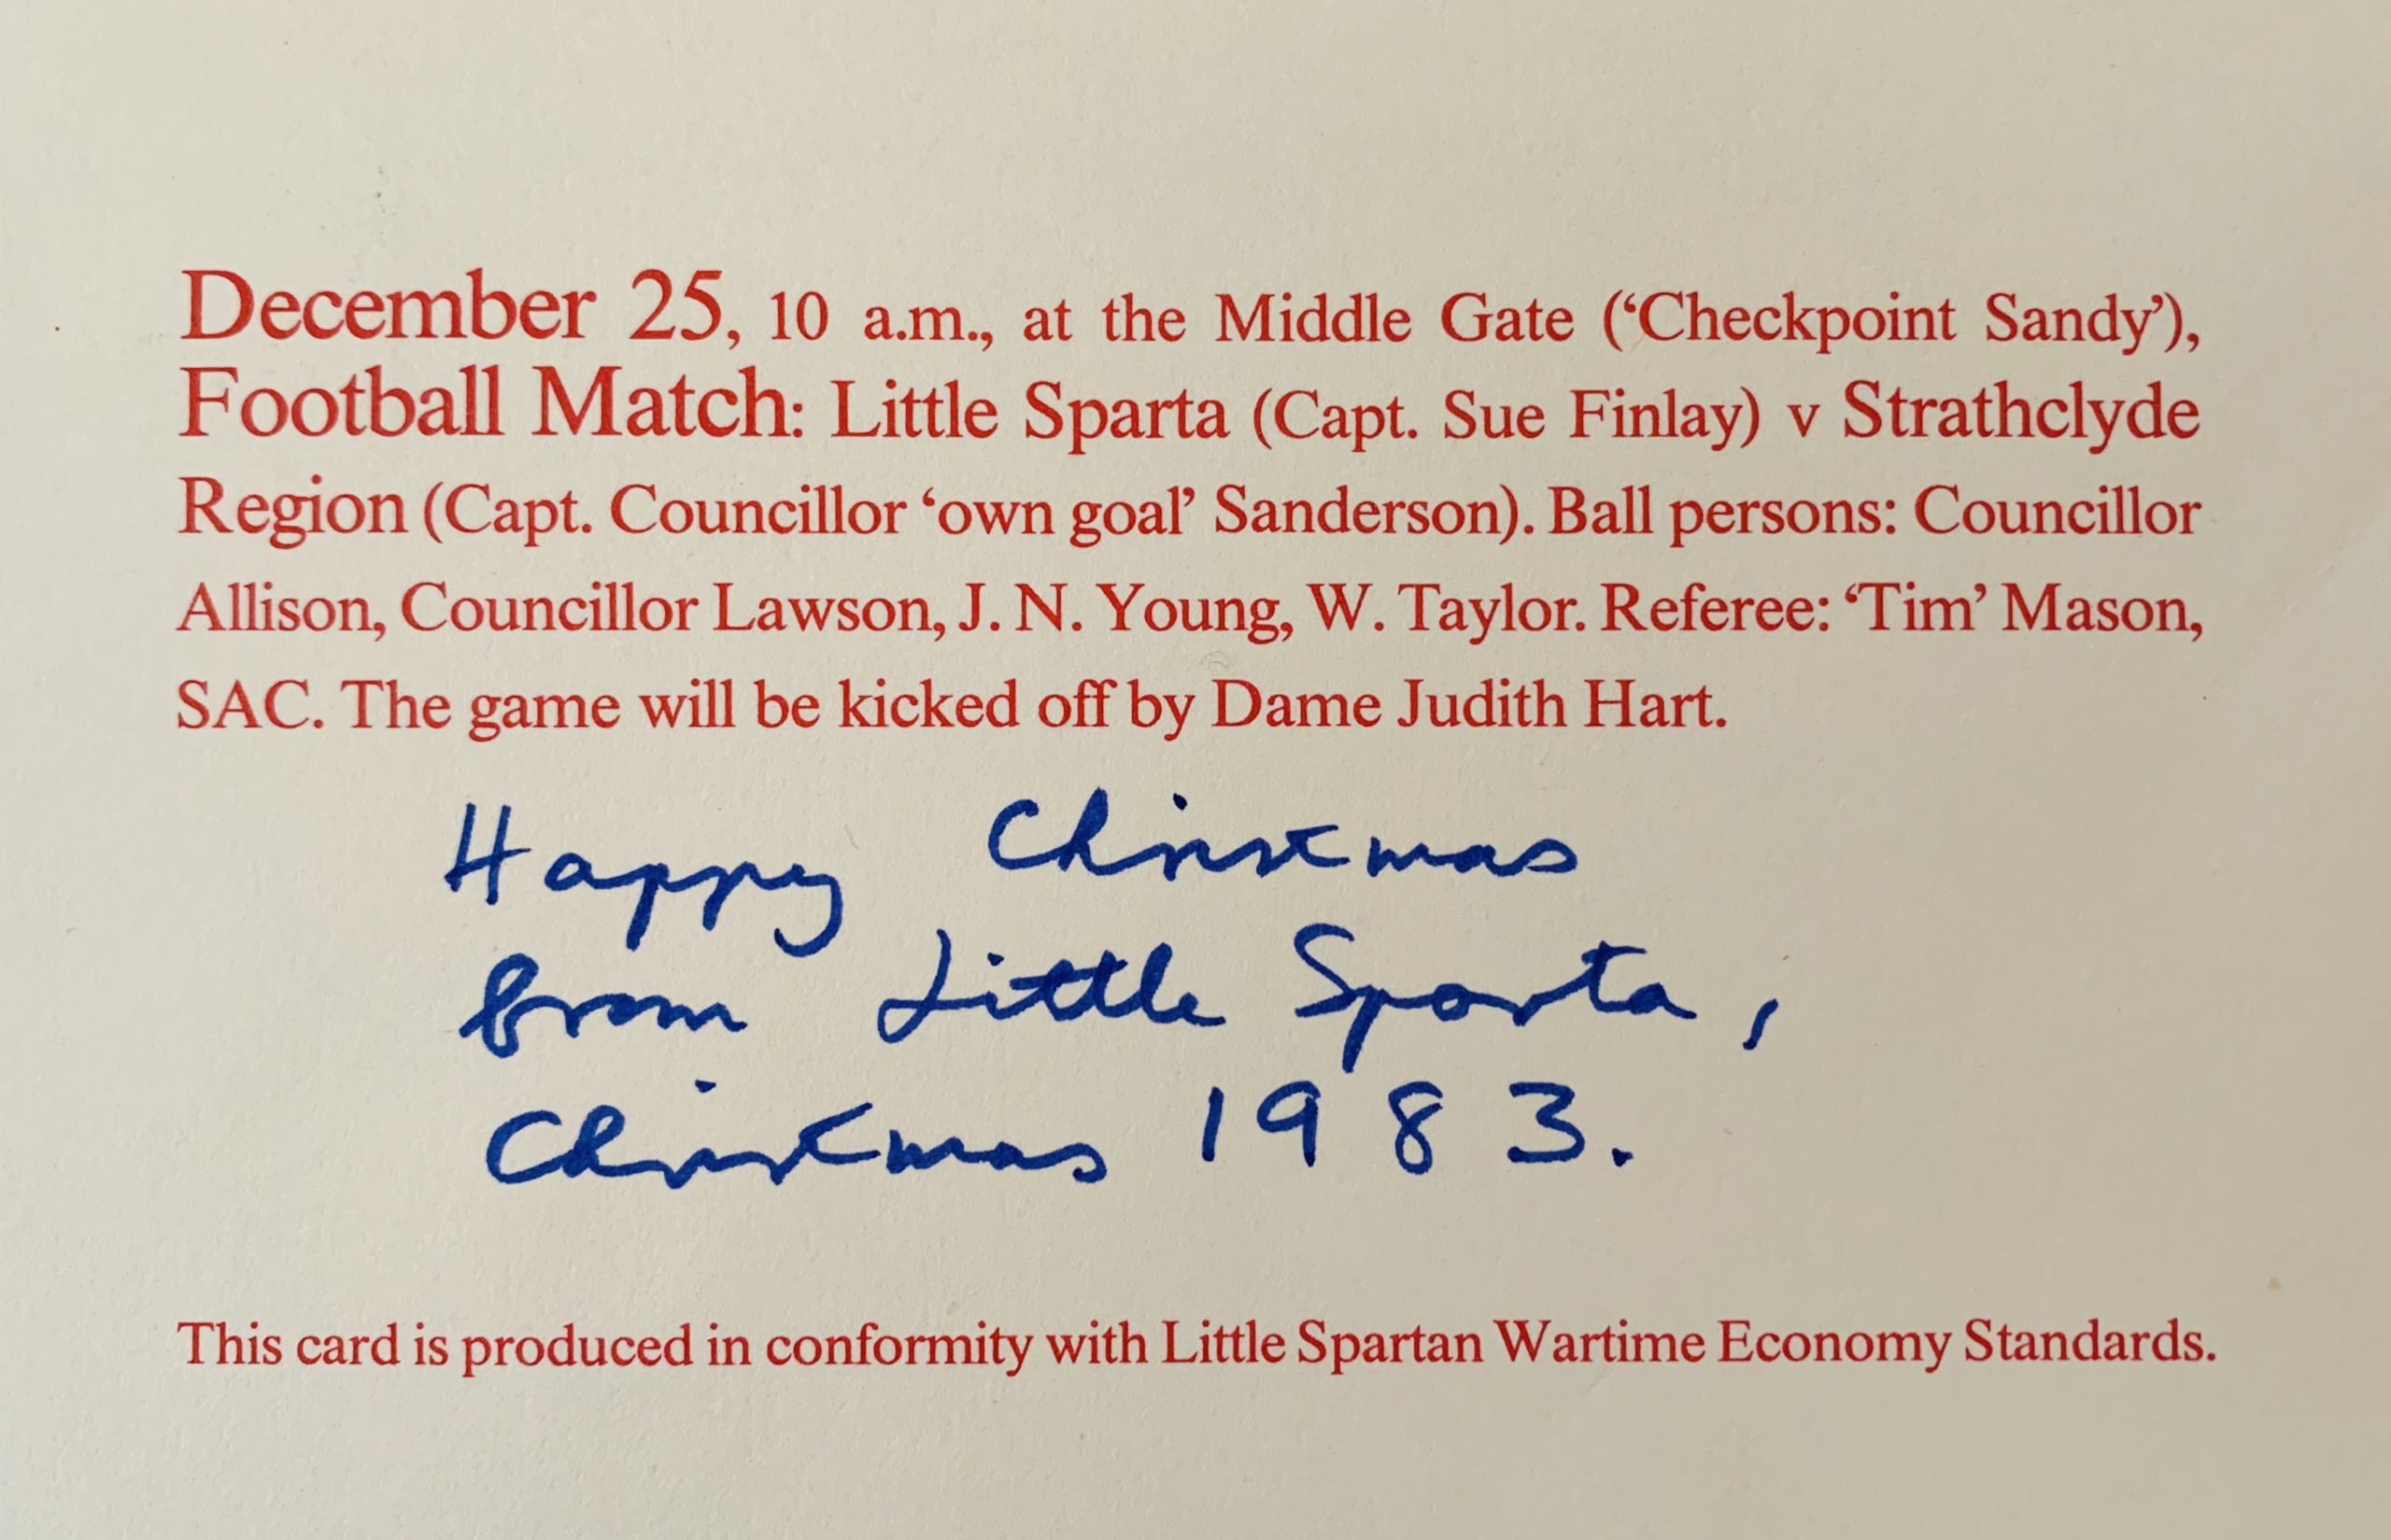 December 25, 10 a.m., at the Middle Gate (‘Checkpoint Sandy’),
Football Match: Little Sparta (Capt. Sue Finlay) v Strathclyde
Region (Capt. Councillor ‘own goal’ Sanderson). Ball persons: Councillor
Allison, Councillor Lawson, J. N. Young, W. Taylor. Referee: ‘Tim’ Mason,
SAC. The game will be kicked off by Dame Judith Hart.
Happy Christmas
from Little Sparta,
Christmas 1983.
This card is produced in conformity with Little Spartan Wartime Economy Standards.